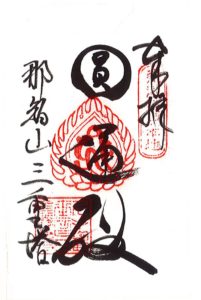 奉拝
圓通殿
那智山三重塔